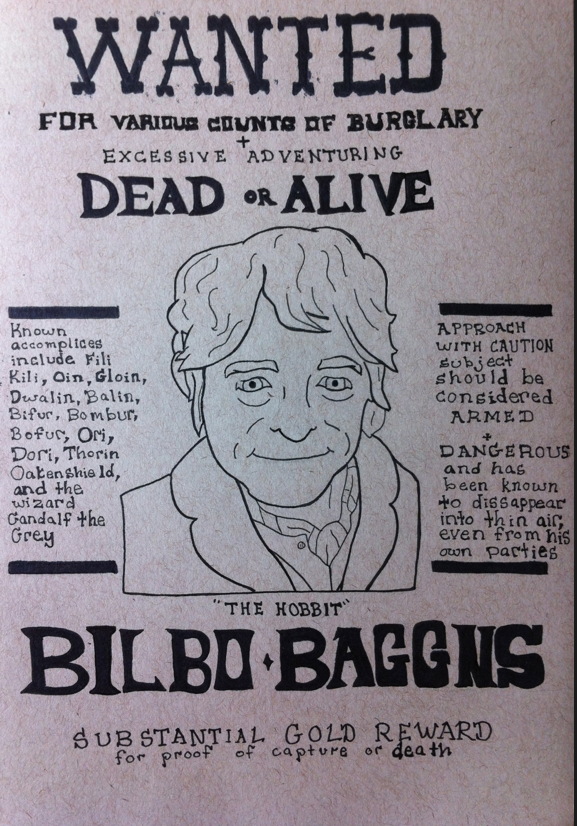 WANTED
FOR VARIOUS COUNTS OF BURGLARY
+
EXCESSIVE ADVENTURING
DEAD OR ALIVE
Known
accomplices
include Fili
Kili, Oin, Gloin,
Dwalin, Balin,
Bifur, Bombur,
Bofur, Ori,
Dori, Thorin
Oakenshield,
and the
wizard
Gandalf the
Grey
APPROACH
WITH CAUTION
subject
should be
considered
ARMED
+
DANGEROUS
and has
been known
to dissappear
into thin air,
even from his
own parties
"THE HOBBIT"
BILBO BAGGNS
SUBSTANTIAL GOLD REWARD
for proof of capture or death